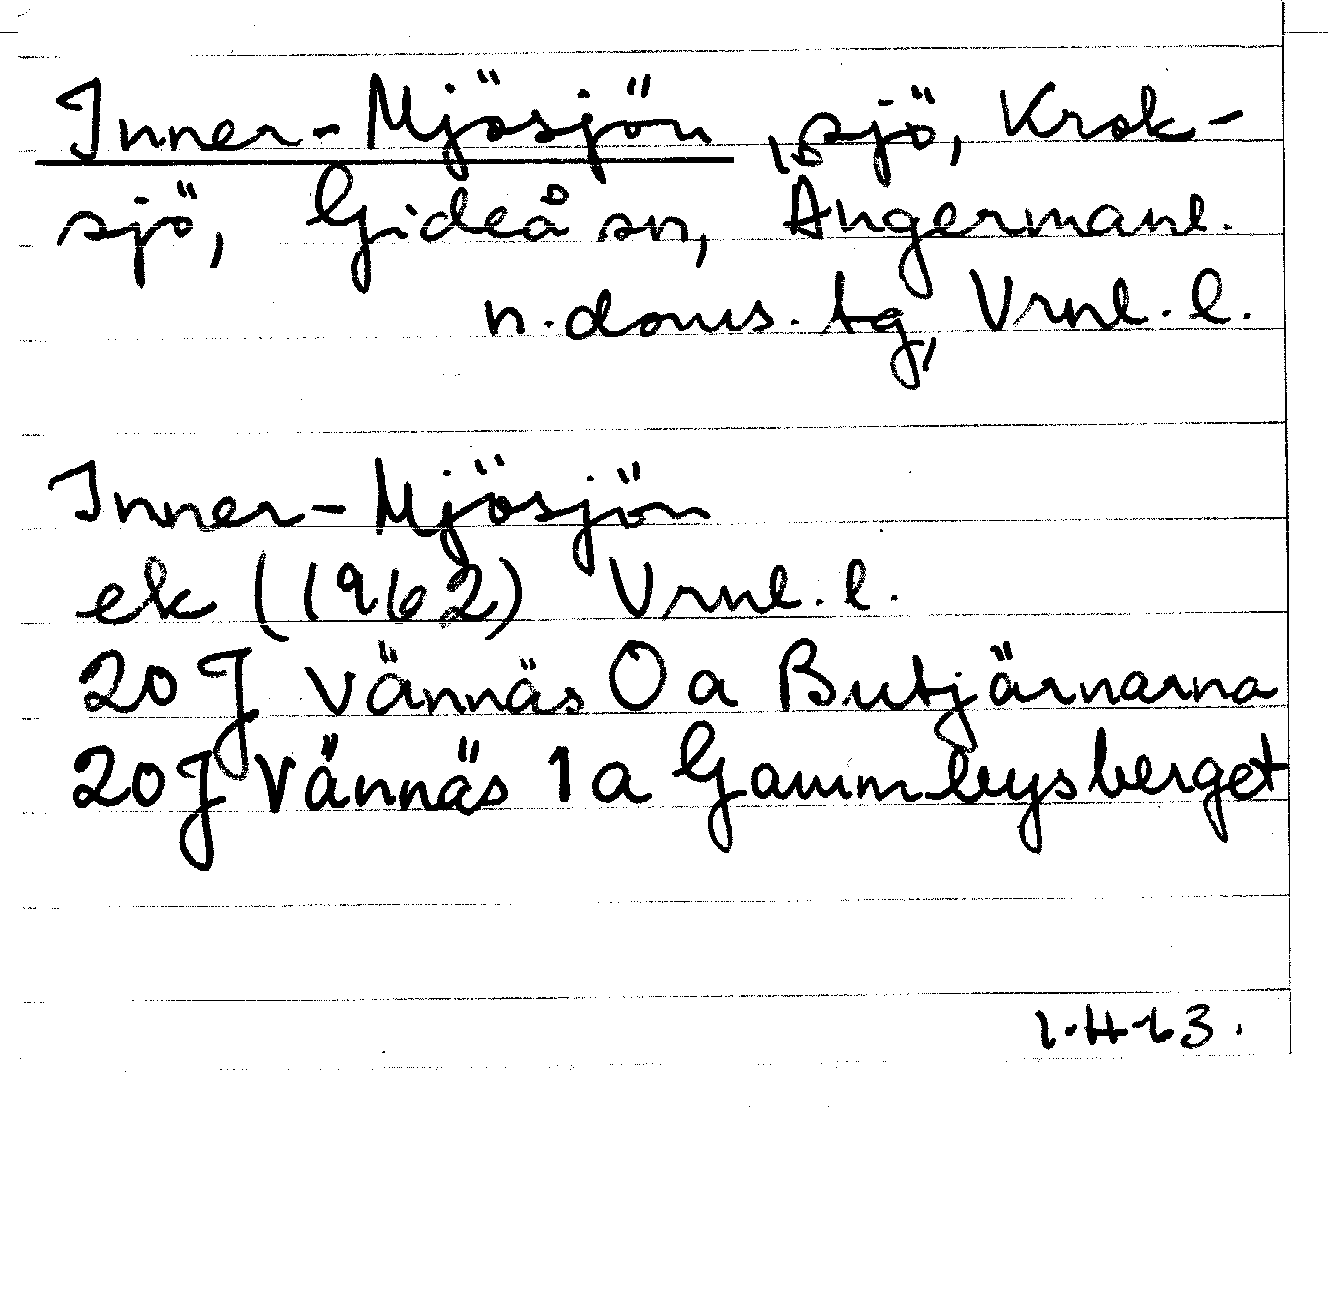 Inner-Mjösjön, sjö, Krok-
sjö, Gideå sn, Ångermanl.
n. doms. tg, Vrnl. l.
Inner-Mjösjön
ek (1962) Vrnl. l.
20 J Vännäs 0 a Butjärnarna
20 J Vännäs 1 a Gammbysberget
1.4-63.